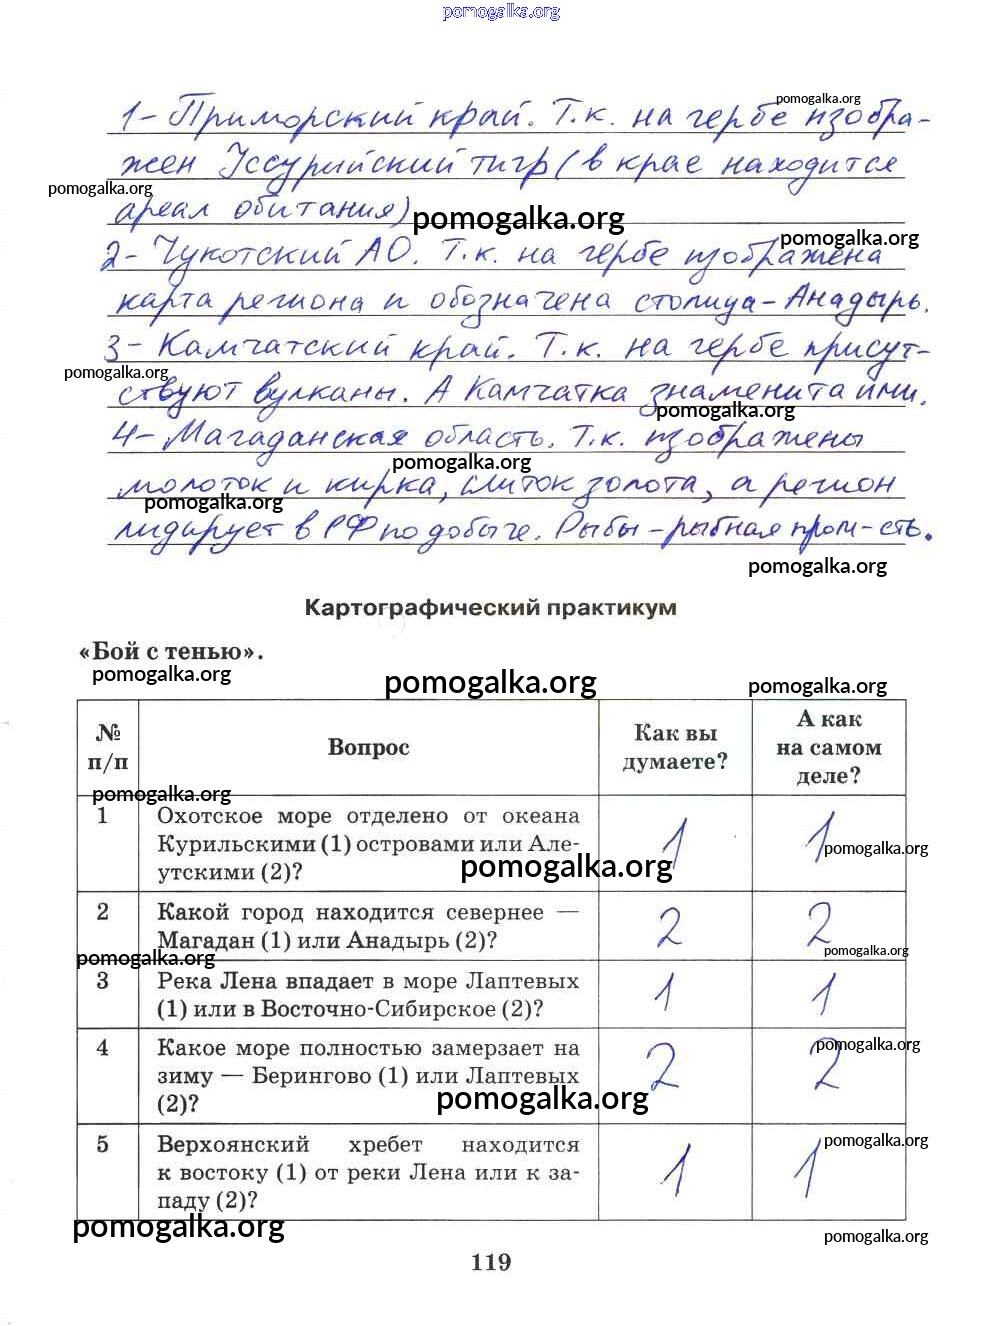 pomogalka.org
pomogalka.org
1- Приморский край. Т.к. на гербе изобра-
жен Уссурийский тигр (в крае находится
pomogalka.org
ареал обитания)
pomogalka.org
pomogalka.org
2- Чукотский АО. Т.к. на гербе изображена
карта региона и обозначена столица - Анадырь.
3- Камчатский край. Т.к. на гербе присут-
pomogalka.org
ствуют вулканы. А Камчатка знаменита ими.
pomogalka.org
4- Магаданская область. Т.к. изображены
pomogalka.org
молоток и кирка, слиток золота, а регион
pomogalka.org
лидирует в РФ по добыче. Рыбы - рыбная пром-сть.
pomogalka.org
Картографический практикум
«Бой с тенью».
pomogalka.org
pomogalka.org
pomogalka.org
№ п/п
Вопрос
Как вы думаете?
А как на самом деле?
pomogalka.org
1
Охотское море отделено от океана
Курильскими (1) островами или Але-
утскими (2)?
1
1
pomogalka.org
pomogalka.org
2
Какой город находится севернее —
Магадан (1) или Анадырь (2)?
2
2
pomogalka.org
pomogalka.org
3
Река Лена впадает в море Лаптевых
(1) или в Восточно-Сибирское (2)?
1
1
4
Какое море полностью замерзает на
зиму — Берингово (1) или Лаптевых
(2)?
2
2
pomogalka.org
pomogalka.org
5
Верхоянский хребет находится
к востоку (1) от реки Лена или к за-
паду (2)?
1
1
pomogalka.org
pomogalka.org
pomogalka.org
119